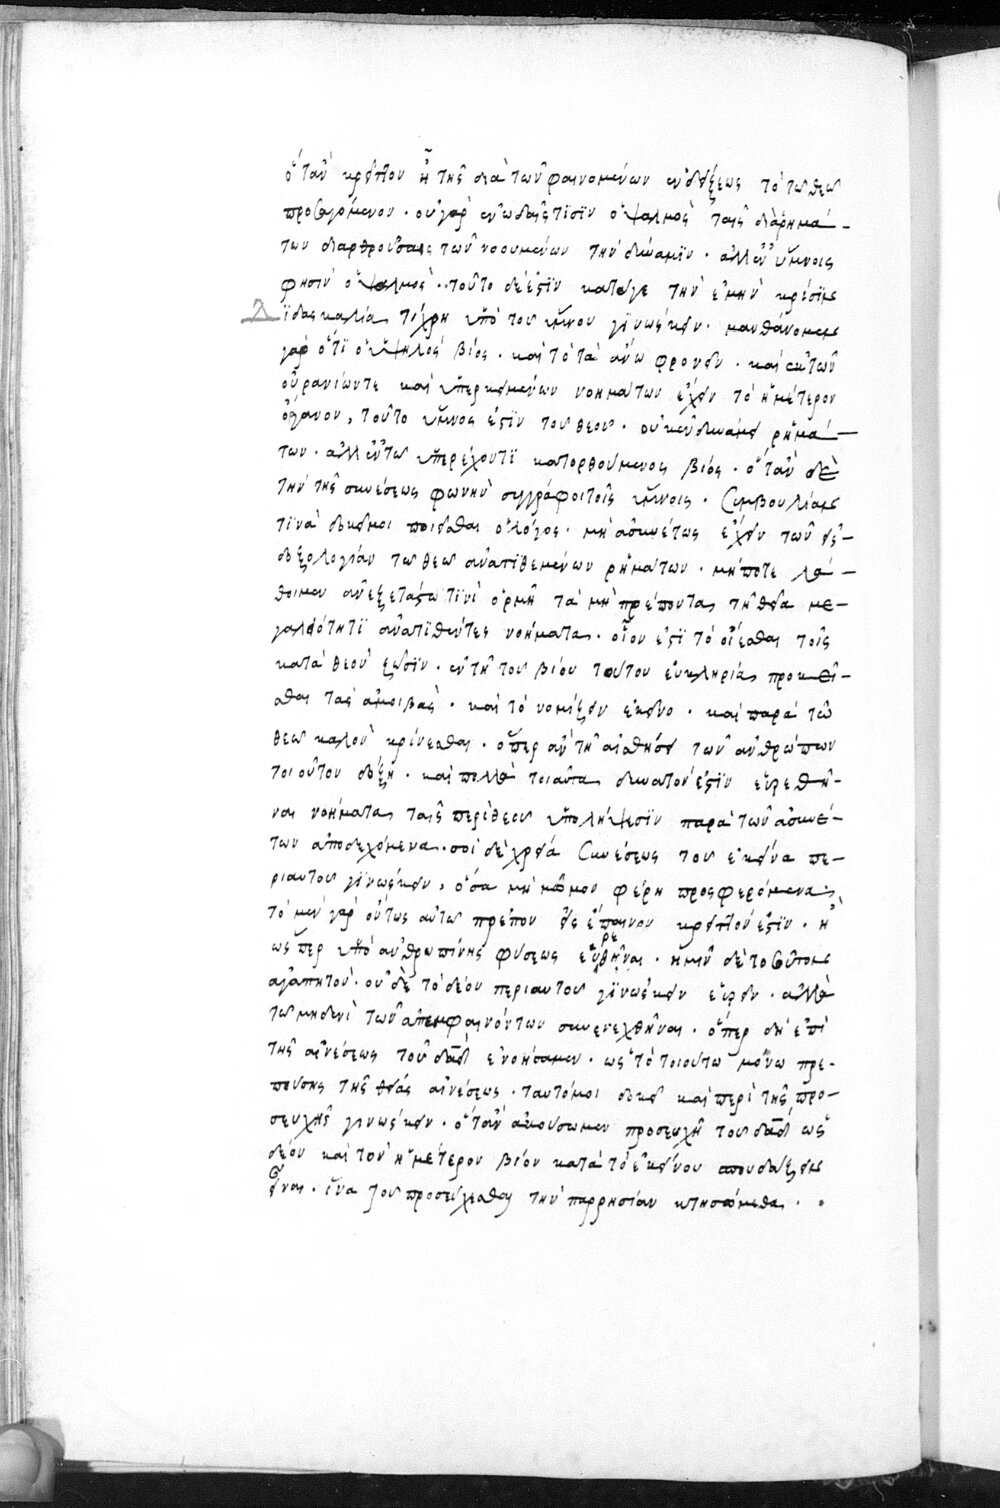 ὅταν κρεῖττον ᾖ τῆς διὰ τῶν φαινομένων ἐνδείξεως τὸ τῶ θεῶ
προσαγόμενον · οὐ γὰρ ἐν ὠδαῖς τισὶν ὁ ψαλμὸς ταῖς διὰ ῥημά-
των διαρθρούσαις τῶν νοουμένων τὴν δύναμιν · ἀλλ' ἐν ὕμνοις
φησὶν ὁ ψαλμός · τοῦτο δέ ἐστιν κατά γε τὴν ἐμὴν κρίσιν
διδασκαλία τί χρὴ ὑπὸ τοῦ ὕμνου γινώσκειν · μανθάνομεν
γὰρ ὅτι ὁ ὑψηλὸς βίος · καὶ τὸ τὰ ἄνω φρονεῖν · καὶ ἐκ τῶν
οὐρανίων τε καὶ ὑπερκειμένων νοημάτων ἠχεῖν τὸ ἡμέτερον
ὄργανον, τοῦτο ὕμνος ἐστὶν τοῦ θεοῦ · οὐκ ἐν δυνάμει ῥημά-
των · ἀλλ' ἐν τῶ ὑπερέχοντι κατορθούμενος βίος · ὅταν δὲ
τὴν τῆς συνέσεως φωνὴν συγγράφοι τοῖς ὕμνοις · συμβουλίαν
τινὰ δοκεῖ μοι ποιεῖσθαι ὁ λόγος · μὴ ἀσυνέτως ἔχειν τῶν εἰς
δοξολογίαν τῶ θεῶ ἀνατιθεμένων ῥημάτων · μήποτε λά-
θοιμεν ἀνεξετάστω τινὶ ὁρμῇ τὰ μὴ πρέποντα τῇ θεία με-
γαλειότητι ἀνατιθέντες νοήματα · οἷον ἐστὶ τὸ οἴεσθαι τοῖς
κατὰ θεὸν ζῶσιν · ἐν τῇ τοῦ βίου τούτου εὐκληρία προκεῖ-
σθαι τὰς ἀμοιβάς · καὶ τὸ νομίζειν ἐκεῖνο · καὶ παρὰ τῶ
θεῶ καλὸν κρίνεσθαι · ὅπερ ἂν τῇ αἰσθήσει τῶν ἀνθρώπων
τοιοῦτον δόξη · καὶ πολλὰ τοιαῦτα δυνατόν ἐστιν εὑρεθῆ-
ναι νοήματα ταῖς περὶ θεοῦ ὑπολήψεσιν παρὰ τῶν ἀσυνέ-
των ἀποδεχόμενα · σοὶ δὲ χρεία συνέσεως τοῦ ἐκεῖνα πε-
ρὶ αὐτοῦ γινώσκειν, ὅσα μὴ μῶμον φέρη προσφερόμενα·
τὸ μὲν γὰρ οὕτως αὐτῶ πρέπον εἰς ἔπαινον κρεῖττόν ἐστιν · ἢ
ὥσπερ ὑπὸ ἀνθρωπίνης φύσεως εὑρεθῆναι · ἡμῖν δὲ τοσοῦτον
ἀγαπητόν · οὐ δὲ τὸ δέον περὶ αὐτοῦ γινώσκειν εἰπεῖν · ἀλλὰ
τῶ μηδενὶ τῶν ἀπεμφαινόντων συνενεχθῆναι · ὅπερ δὴ ἐπὶ
τῆς αἰνέσεως τοῦ δαδ ἐνοήσαμεν · ὡς τὸ τοιούτω μόνω πρε-
πούσης τῆς θείας αἰνέσεως · ταυτό μοι δοκεῖ καὶ περὶ τῆς προ-
σευχῆς γινώσκειν · ὅταν ἀκούσωμεν προσευχὴ τοῦ δαδ ὡς
δέον καὶ τὸν ἡμέτερον βίον κατὰ τὸ ἐκείνου σπουδάζειν
εἶναι · ἵνα τοῦ προσεύχεσθαι τὴν παρρησίαν κτησώμεθα · .